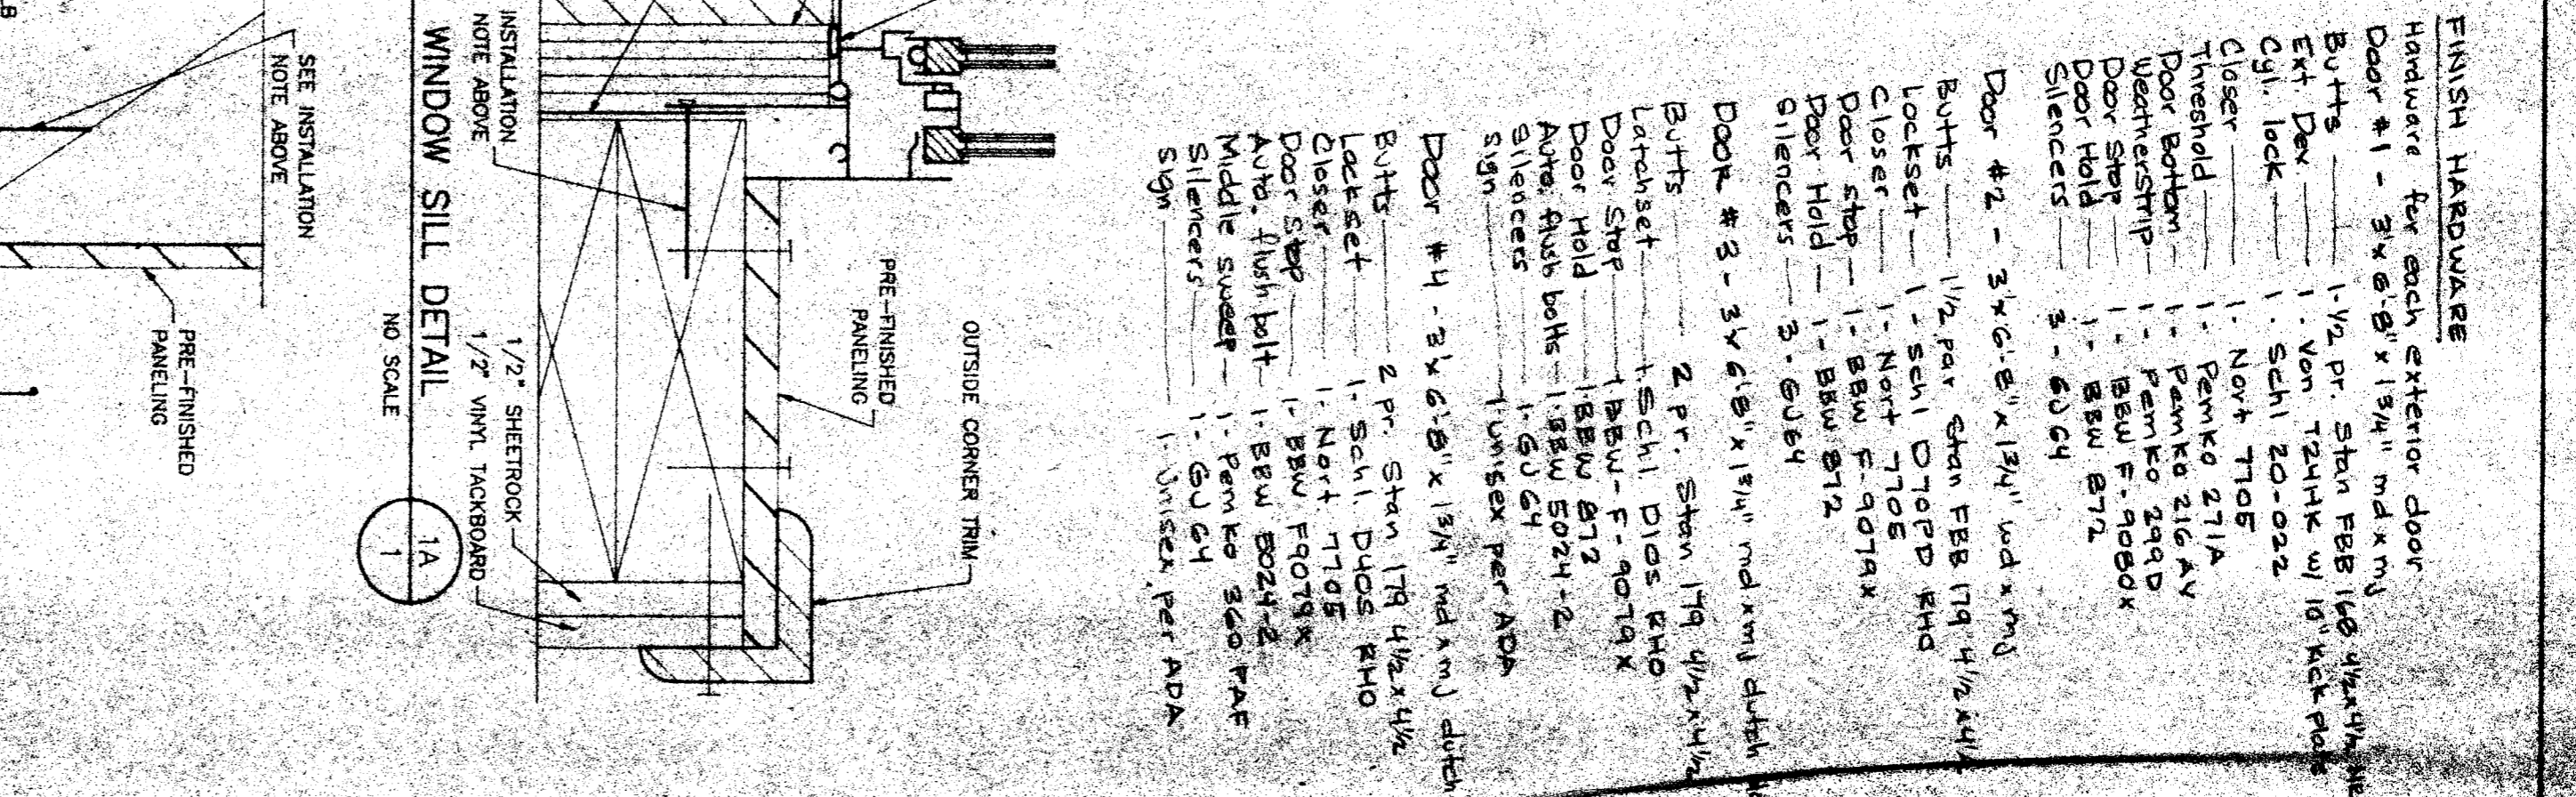 FINISH HARDWARE
Hardware for each exterior door
Door #1 - 3'x 6'-8" x 1 3/4" md x mj
Butts 1-1/2 pr. Stan FBB 168 4 1/2 x 4 1/2
Ext Dev. 1. Von T24HK w/ 10" kick plate
Cyl. lock 1. Schl 20-022
Closer 1- Nort 7705
Threshold 1- Pemko 271A
Door Bottom 1- Pemko 216 AV
Weatherstrip 1- Pemko 299D
Door Stop 1- BBW F-9080X
Door Hold 1- BBW 872
Silencers 3 - GJ 64
Door #2 - 3'x 6'-8" x 1 3/4" wd x mj
Butts 1 1/2 par Stan FBB 179 4 1/2 x 4 1/2
Lockset 1 - Schl D70PD RHO
Closer 1 - Nort 7705
Door stop 1- BBW F-9079X
Door Hold 1- BBW 872
Silencers 3 - GJ64
Door #3 - 3'x 6'8" x 1 3/4" md x mj dutch
Butts 2 pr. Stan 179 4 1/2 x 4 1/2
Latchset 1. Schl D10S RHO
Door Stop 1 BBW - F-9079X
Door Hold 1-BBW 872
Auto. flush bolts 1-BBW 5024-2
Silencers 1-GJ64
Sign 1-unisex per ADA
Door #4 - 3'x 6'-8" x 1 3/4" md x mj dutch
Butts 2 pr. Stan 179 4 1/2 x 4 1/2
Lockset 1- Schl. D40S RHO
Closer 1- Nort 7705
Door Stop 1- BBW F9079X
Auto. flush bolt 1- BBW 5024-2
Middle sweep 1- Pemko 360 PAF
Silencers 1- GJ 64
Sign 1- Unisex, per ADA
OUTSIDE CORNER TRIM
PRE-FINISHED
PANELING
INSTALLATION
NOTE ABOVE
1/2" SHEETROCK
1/2" VINYL TACKBOARD
WINDOW SILL DETAIL
NO SCALE
1A
1
SEE INSTALLATION
NOTE ABOVE
PRE-FINISHED
PANELING